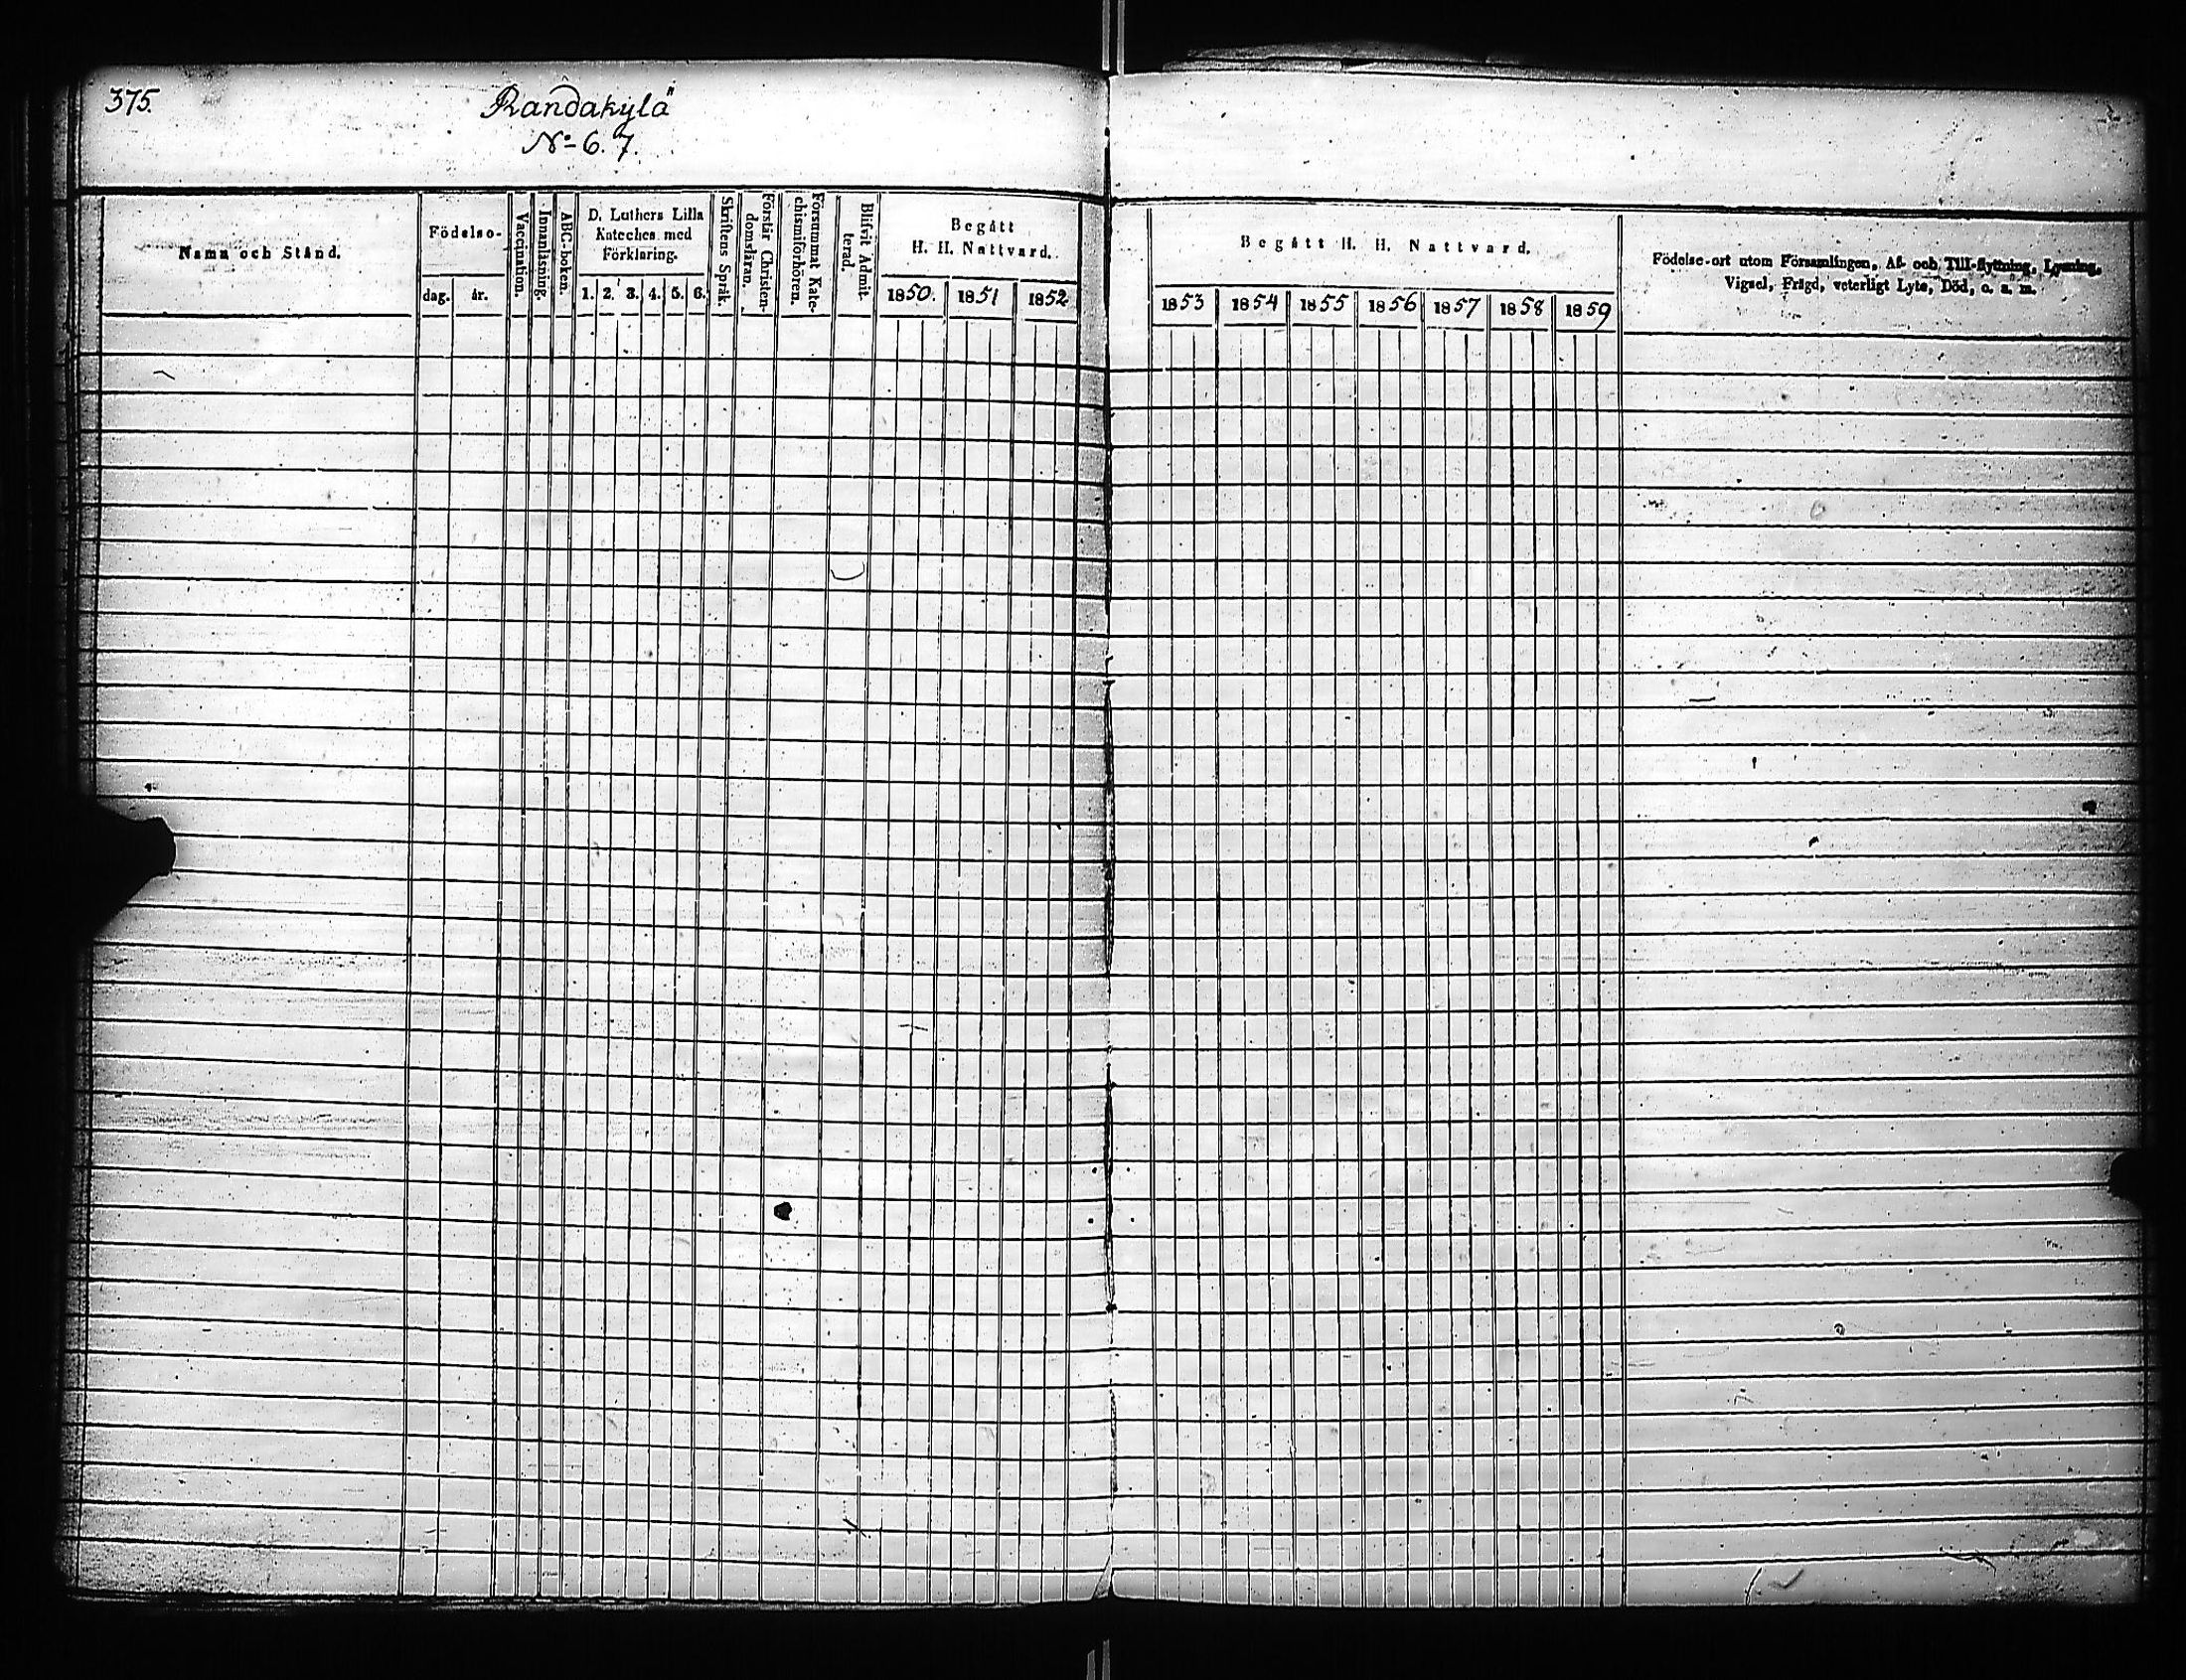 375.
Randakylä
No 6. 7.
Namn och Stånd.
Födelse-
dag.
år.
Vaccination.
Innanläsning.
ABC-boken.
D. Luthers Lilla
Kateches med
Förklaring.
1. 2. 3. 4. 5. 6.
Skriftens Språk.
Förstår Christen-
domsläran.
Försummat Kate-
chismiförhören.
Blifvit Admit-
terad.
Begått
H. H. Nattvard.
1850. 1851 1852
Begått H. H. Nattvard.
1853 1854 1855 1856 1857 1858 1859
Födelse-ort utom Församlingen, Af- och Till-flyttning, Lysning,
Vigsel, Frägd, veterligt Lyte, Död, o. s. m.